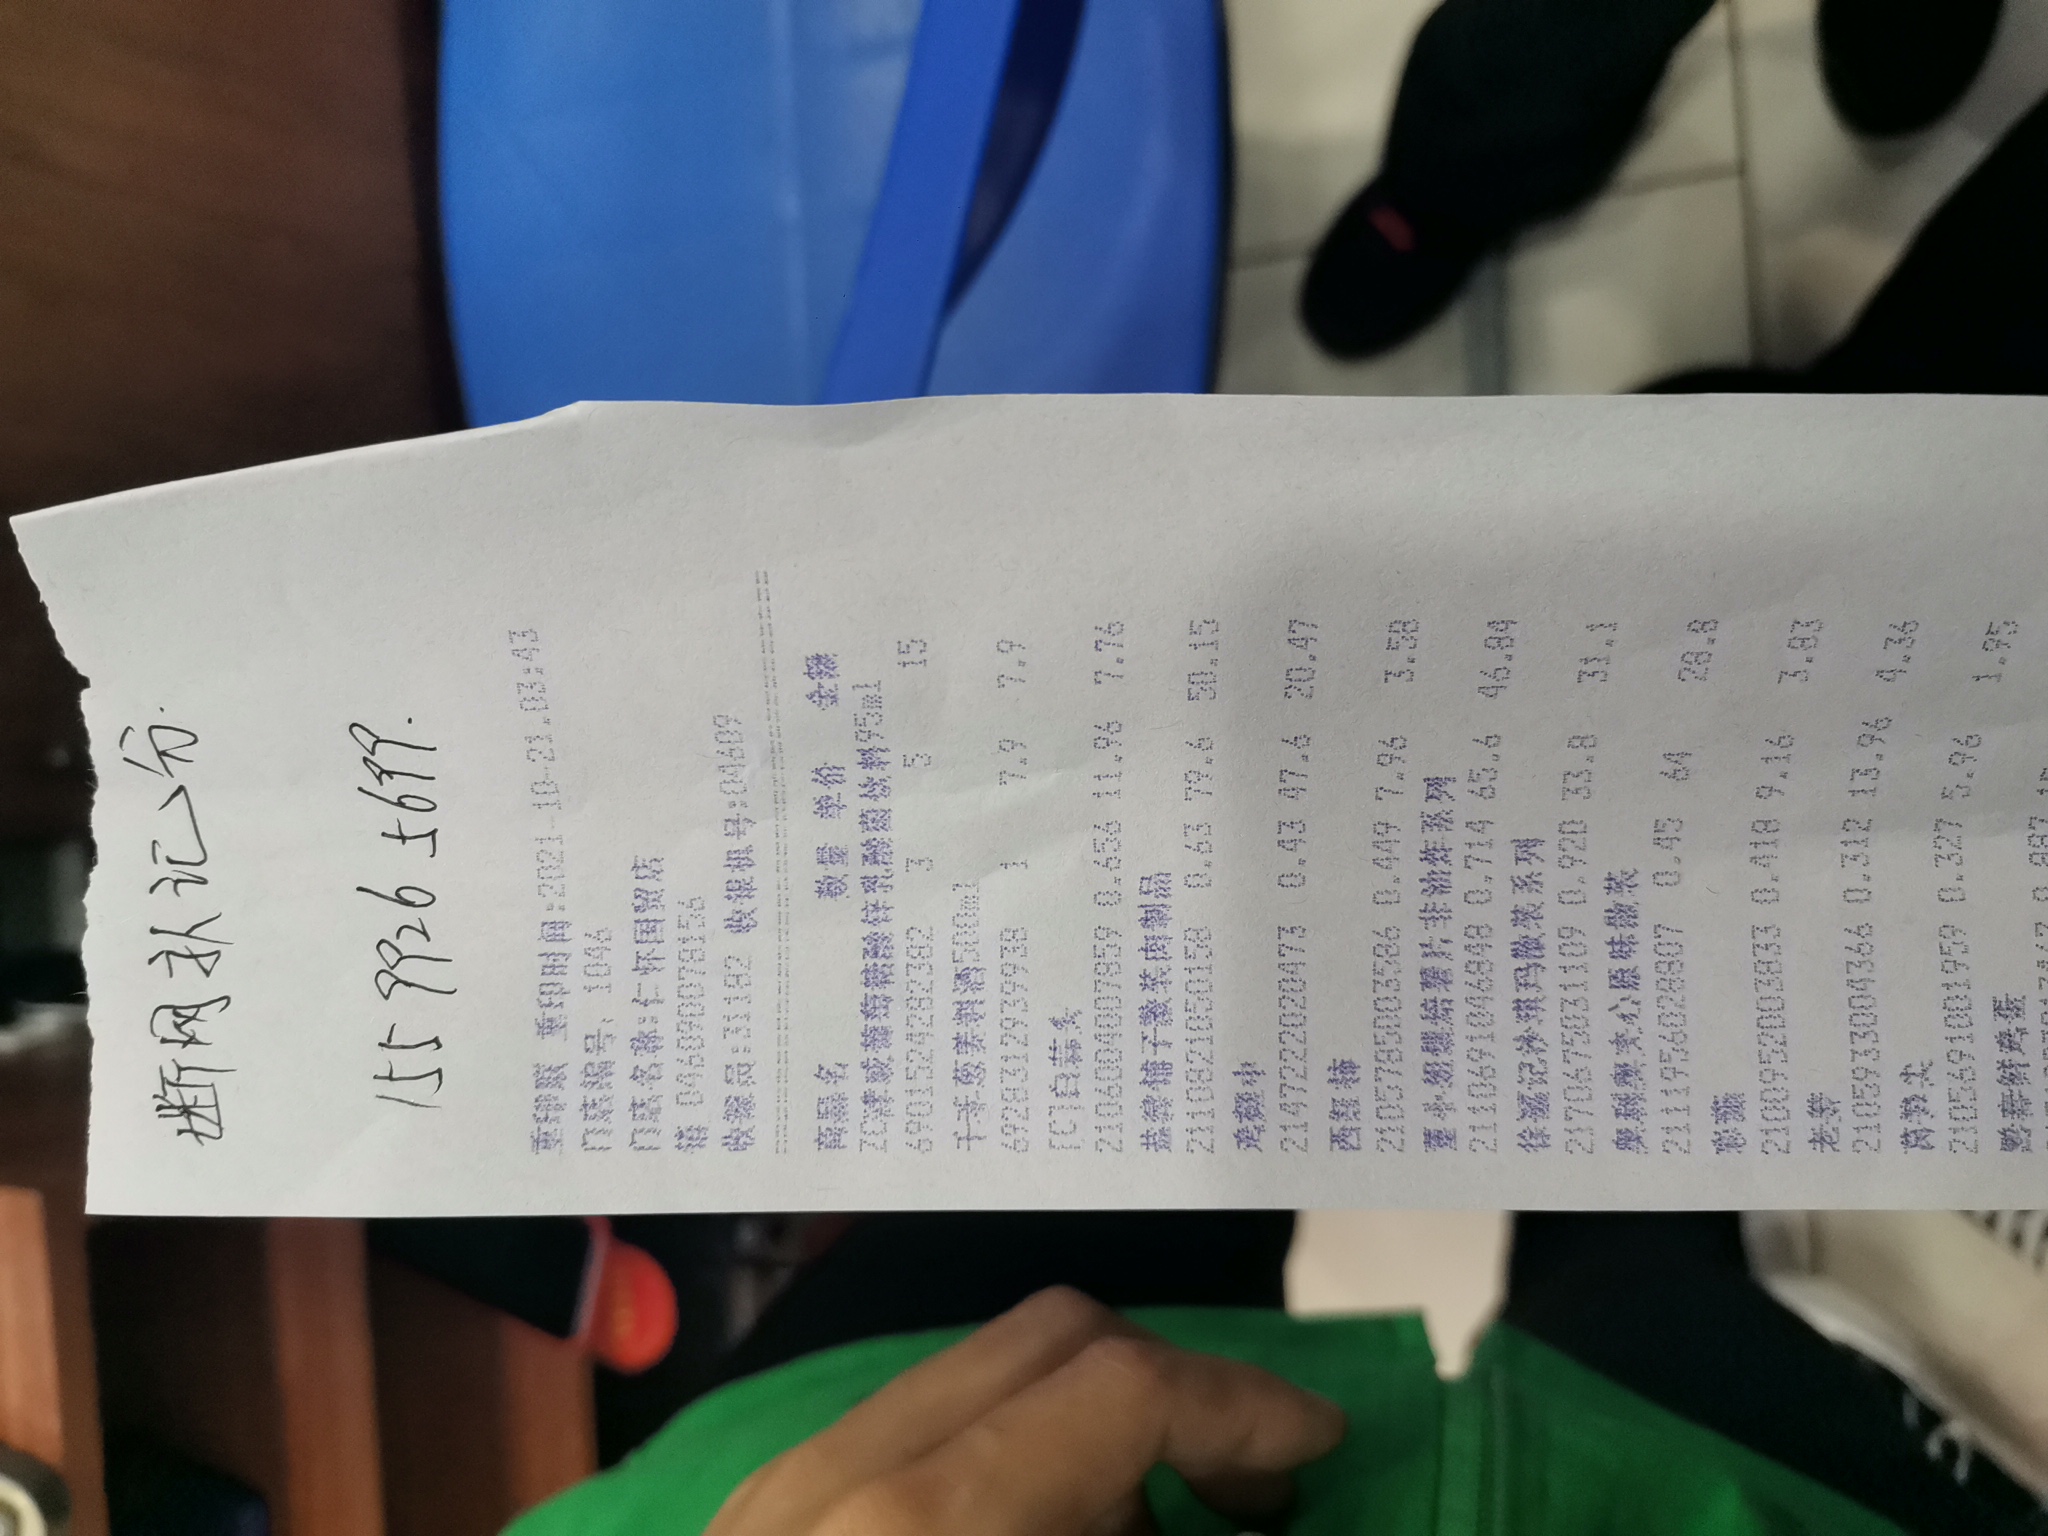 断网补记分.
155 9926 5699.
重印联 重印时间:2021-10-21.03:43
门店编号: 1046
门店名称:仁怀国贸店
0460900078156
收银员:31182 收银机号:04609
商品名 数量 单价 金额
95ml
6901524282382 3 5 15
千禾葱姜料酒500ml
6928312939938 1 7.9 7.9
[C]白蒜
2106040007859 0.656 11.96 7.76
盐津铺子散装肉制品
2110821050158 0.63 79.6 50.15
鸡翅中
2147222020473 0.43 47.6 20.47
西红柿
2105785003586 0.449 7.96 3.58
董小姐烘焙薯片非油炸系列
2110691046848 0.714 65.6 46.84
徐福记沙琪玛散装系列
2170675031109 0.920 33.8 31.1
奥利奥夹心原味散装
2111195602880​7 0.45 64 28.8
2100952003833 0.418 9.16 3.83
老姜
2105933004366 0.312 13.96 4.36
莴笋尖
2105691001959 0.327 5.96 1.95